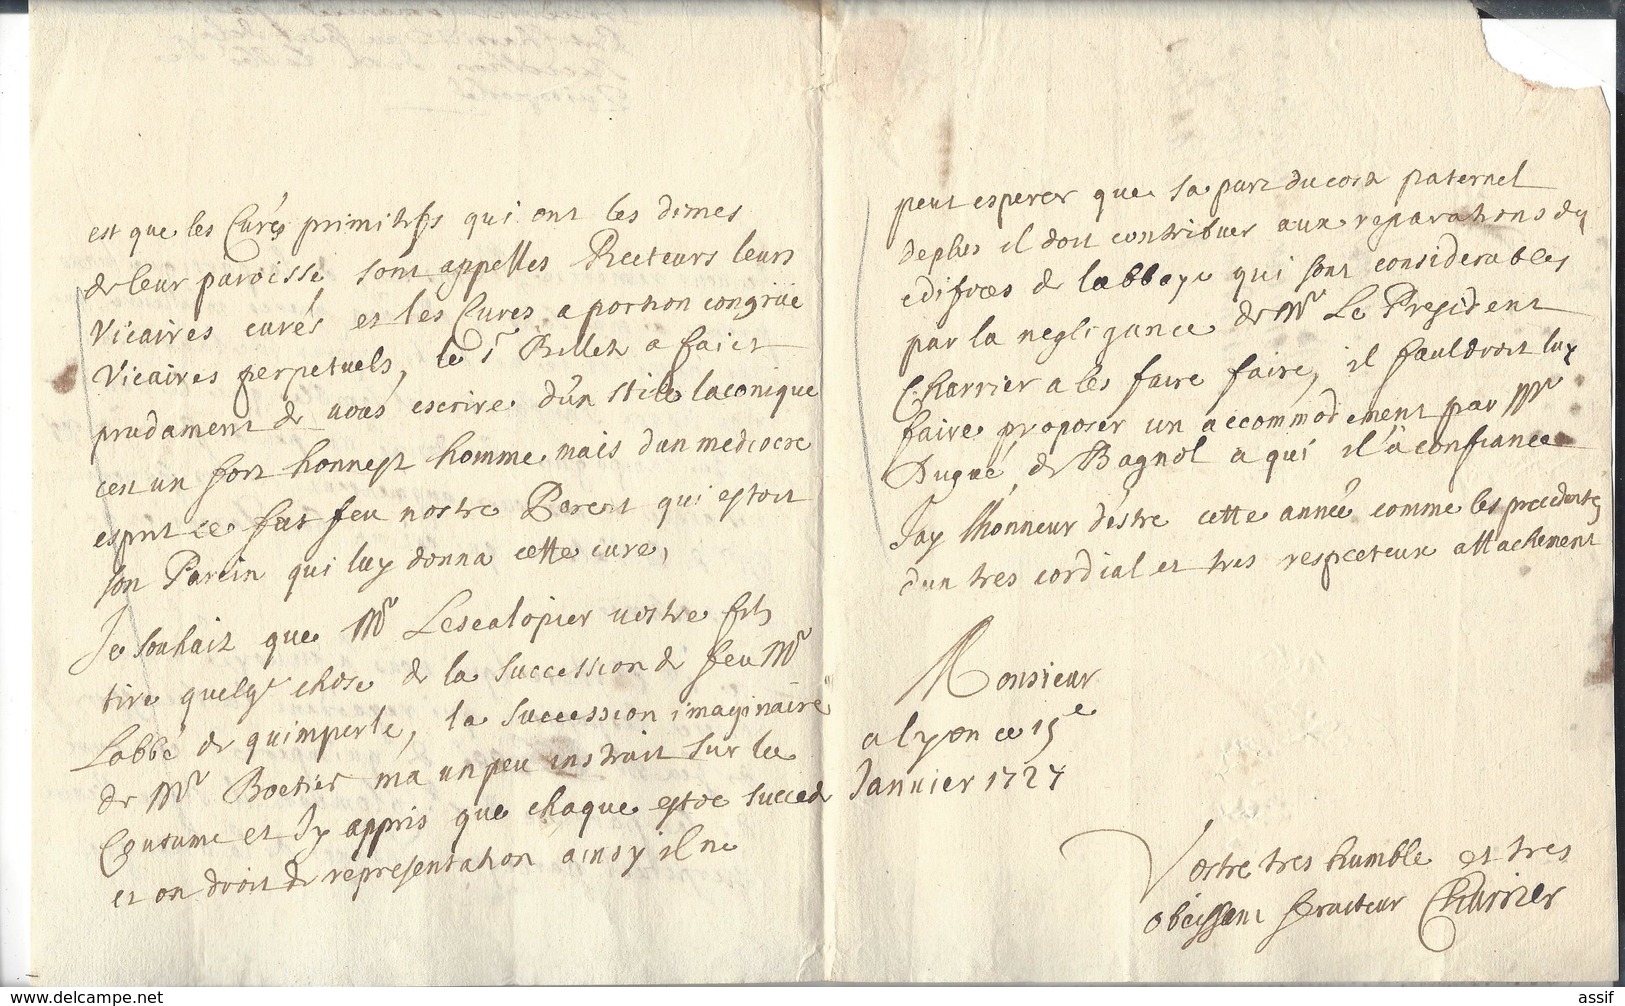 est que les Curés primitifs qui ont les dimes
de leur paroisse sont appelles Recteurs leurs
Vicaires curés et les Cures a portion congrüe
Vicaires perpetuels, le Sr Billet a faict
prudament de vous escrire d'un stile laconique
cest un fort honneste homme mais dun mediocre
esprit ce fut feu nostre Parent qui estoit
son Parein qui luy donna cette cure,
Je souhait que Mr Lescalopier vostre fils
tire quelqe chose de la succession de feu Mr
Labbé de quimperlé, la succession imaginaire
de Mr Boetier ma un peu instruit sur la
Coutume et Jy appris que chaque estoc succede
et on droit de representation ainsy il ne
peut esperer que sa part du costé paternel
deplus il doit contribuer aux reparations dey
edifices de labbaye qui sont considerables
par la negligance de Mr Le President
Charrier a les faire faire, il fauldroit luy
faire proposer un accommodement par Mr
Dugué de Bagnol a qui il a confiance
Jay lhonneur destre cette année comme les precedentes
dun tres cordial et tres respecteux attachement
Monsieur
a lyon ce 15e
Janvier 1727
Vostre tres humble et tres
obeissant serviteur Charrier
www.delcampe.net
assif